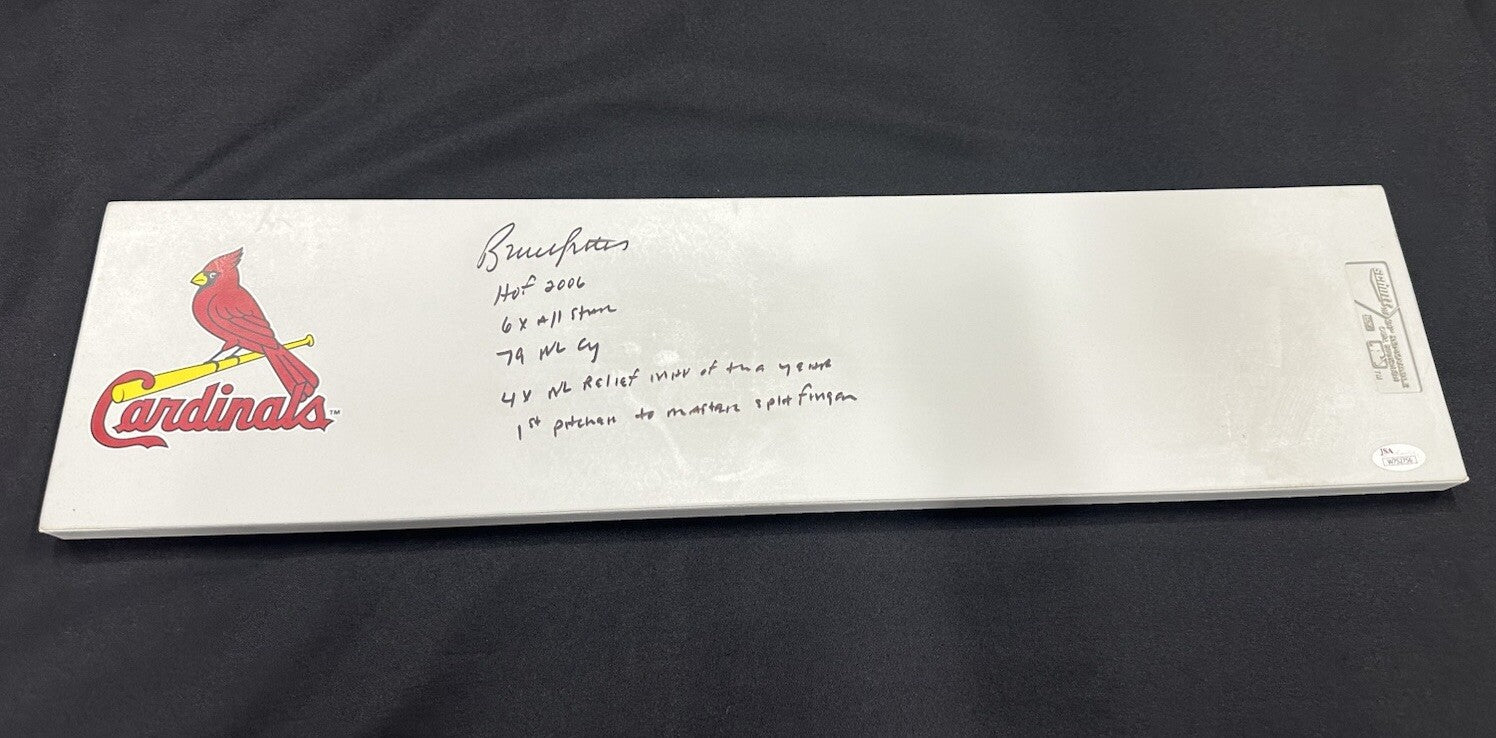 Cardinals™
Bruce Sutter
HoF 2006
6x All Star
79 NL Cy
4x NL Relief man of the year
1st pitcher to master split finger
JSA
W752756